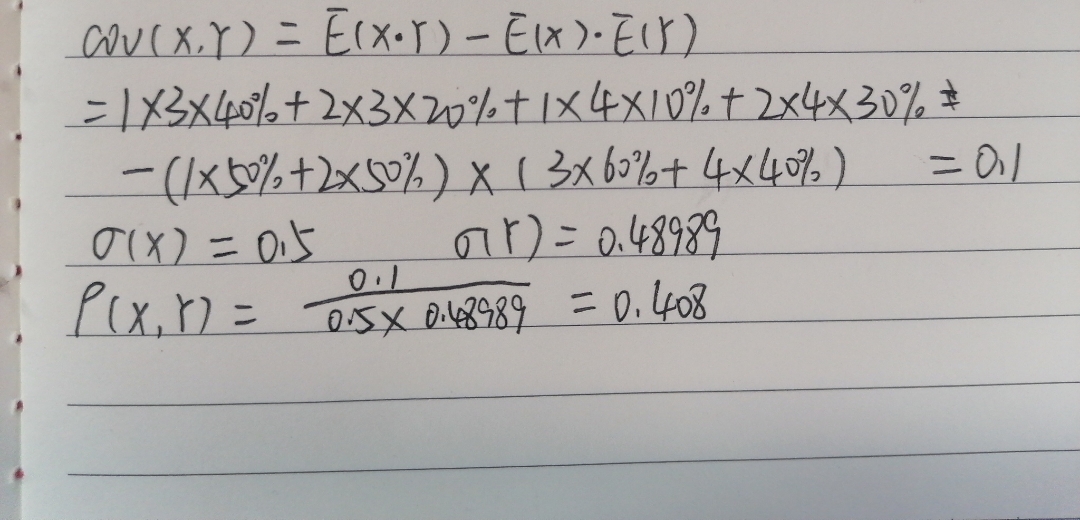 cov(X,Y) = E(X·Y) - E(X)·E(Y)
= 1×3×40% + 2×3×20% + 1×4×10% + 2×4×30%
- (1×50% + 2×50%) × (3×60% + 4×40%) = 0.1
σ(X) = 0.5 σ(Y) = 0.48989
ρ(X,Y) = 0.1 / 0.5 × 0.48989 = 0.408